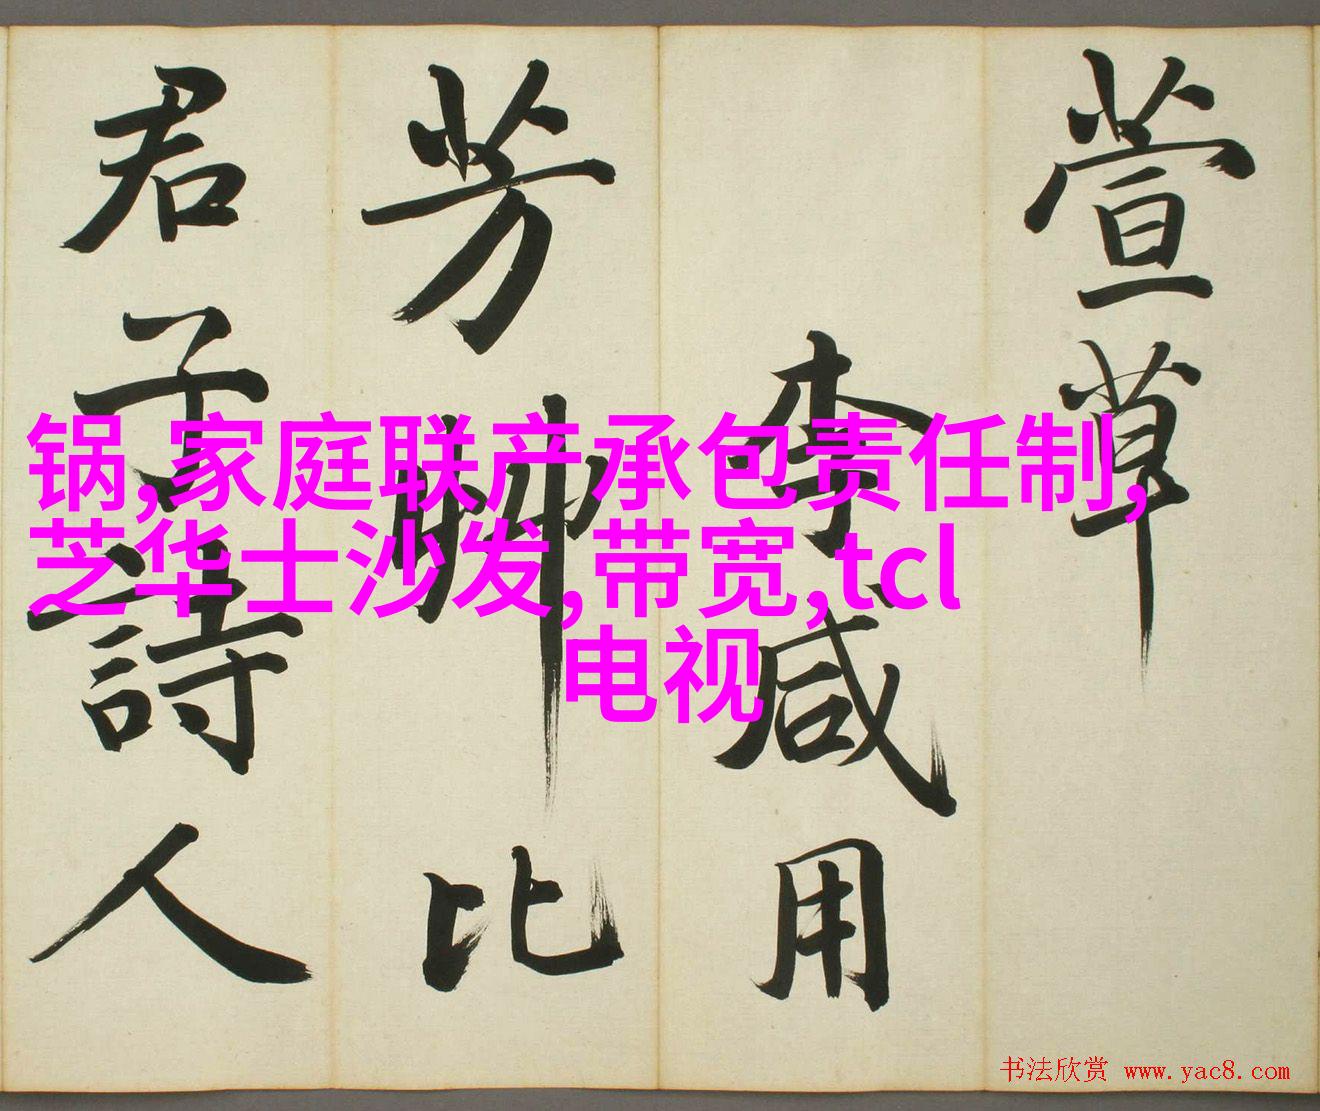 萱草
李咸用
芳艸比
君子詩人
锅,家庭联产承包责任制,
芝华士沙发,带宽,tcl
电视
书法欣赏 www.yac8.com